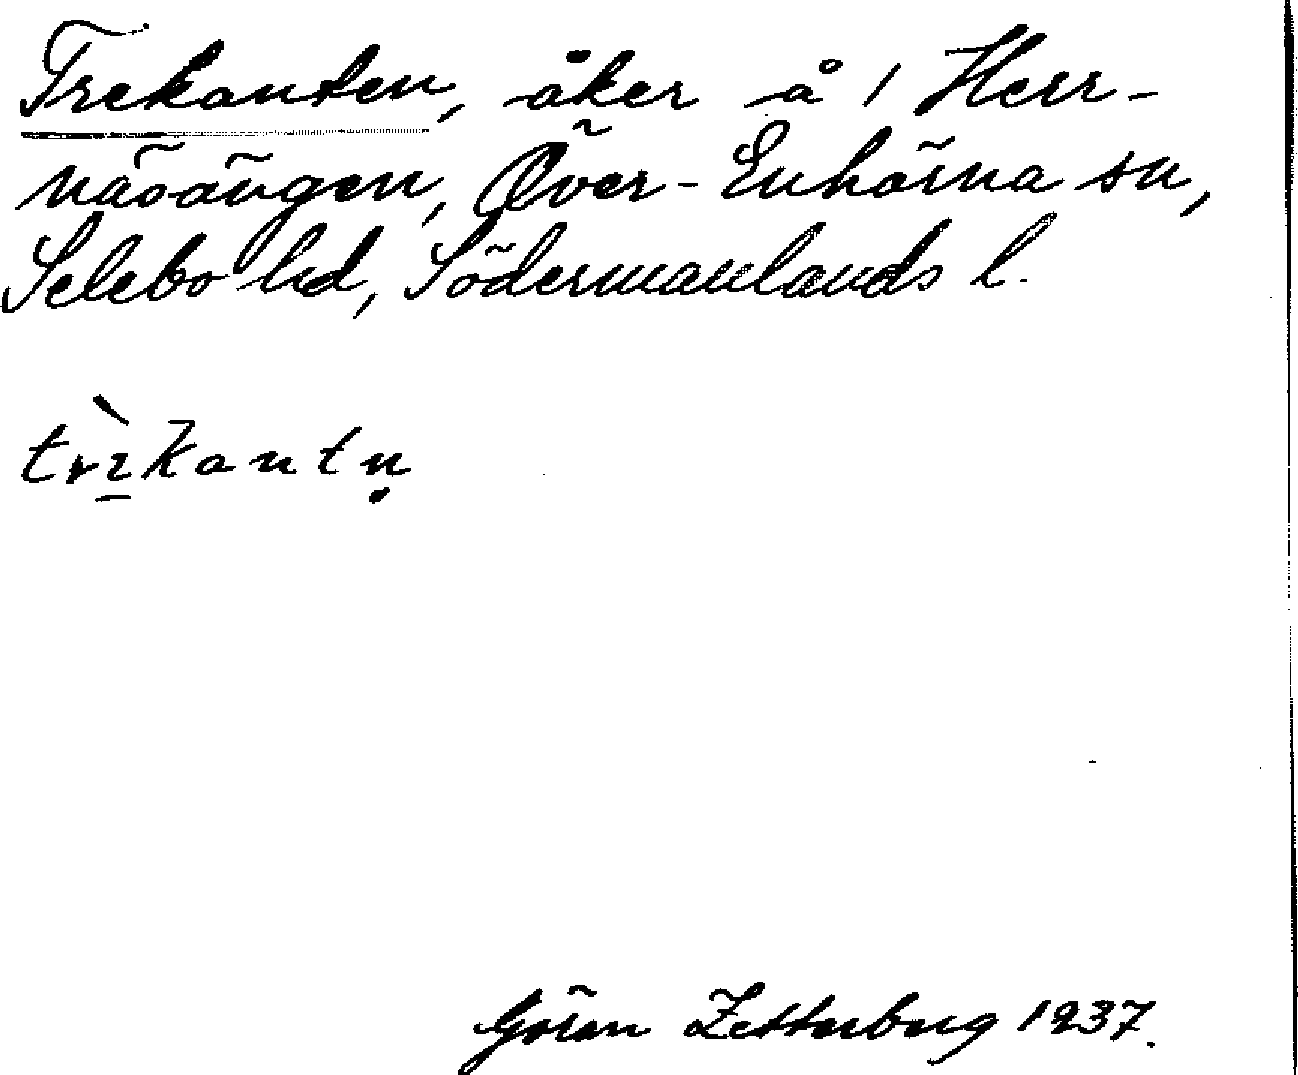 Trekanten, åker å 1 Herr-
näsängen, Över-Enhörna sn,
Selebo hd, Södermanlands l.
trı̱̀kantṇ
Göran Zetterberg 1937.